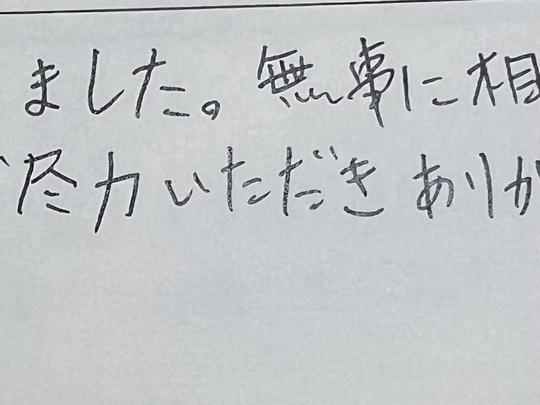 ました。無事に相
尽力いただきありが